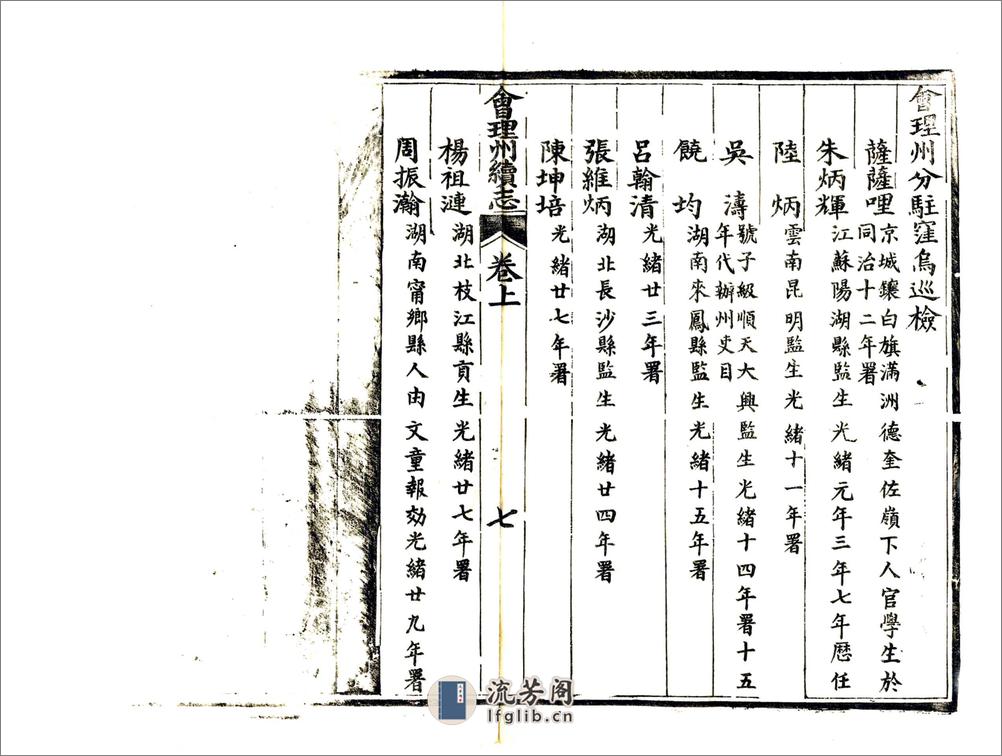 會理州分駐窪烏巡檢
薩薩哩 京城鑲白旗滿洲德奎佐嶺下人官學生於
同治十二年署
朱炳輝 江蘇陽湖縣監生光緒元年三年七年歷任
陸炳 雲南昆明監生光緒十一年署
吳濤 號子級順天大興監生光緒十四年署十五
年代辦州吏目
饒均 湖南來鳳縣監生光緒十五年署
呂翰清 光緒廿三年署
張維炳 湖北長沙縣監生光緒廿四年署
陳坤培 光緒廿七年署
會理州續志 卷上 七
楊祖漣 湖北枝江縣貢生光緒廿七年署
周振瀚 湖南甯鄉縣人由文童報効光緒廿九年署
流芳阁
lfglib.cn